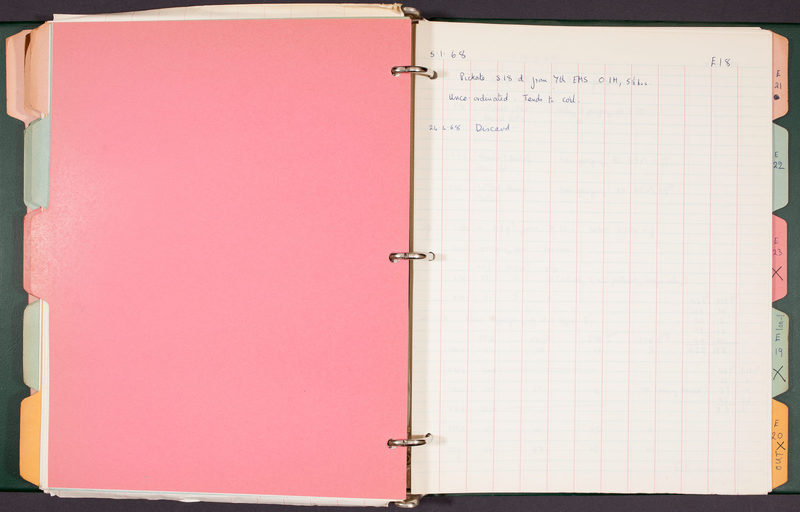 5·1·68
E18
Pickate S18 d from 7th EMS 0.1M, 5½hrs.
Unco-ordinated. Tends to coil.
24·4·68 Discard
E
21
E
22
E
23
X
E
19
X
E
20
X
OUT